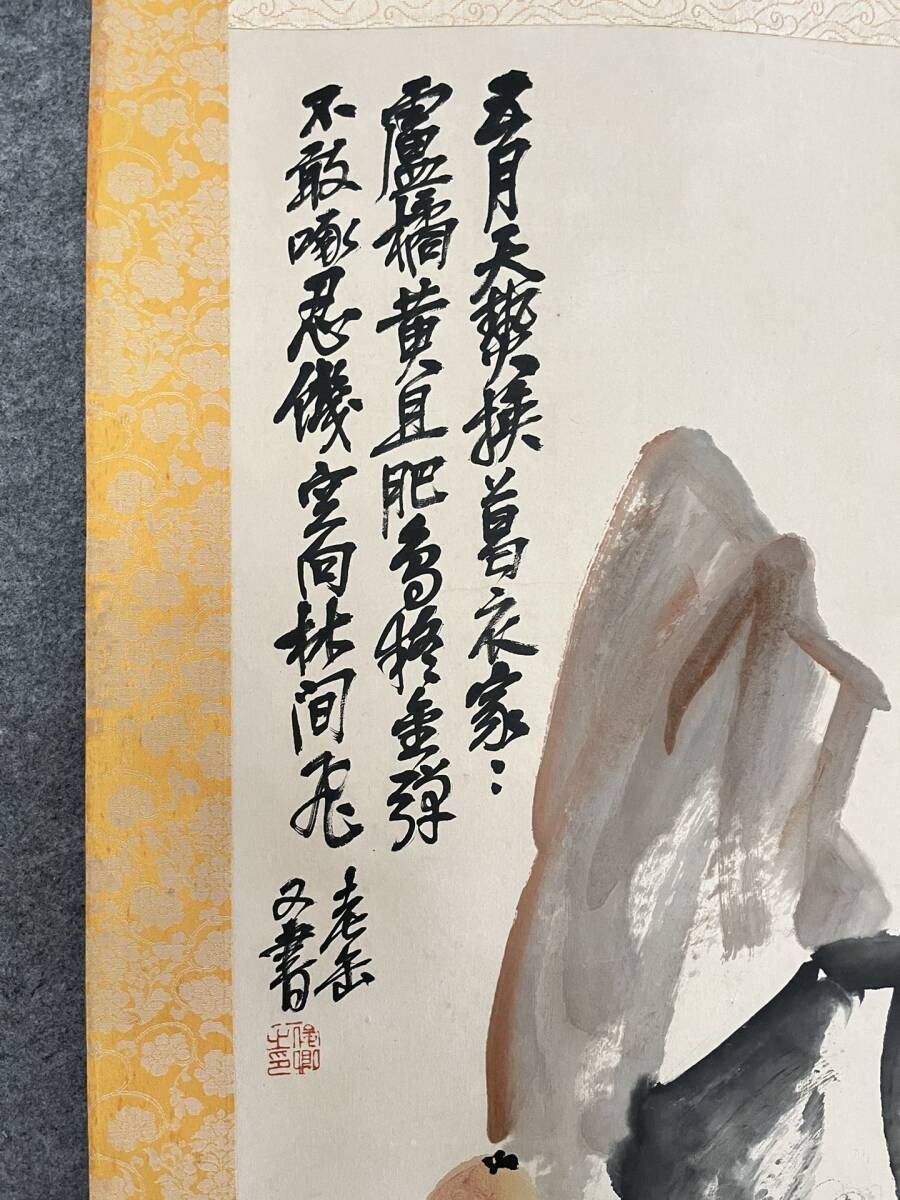 五月天熱換葛衣家〻
盧橘黃且肥鳥疑金彈
不敢啄忍饑空向林間飛
老缶
又書
俊卿
之印